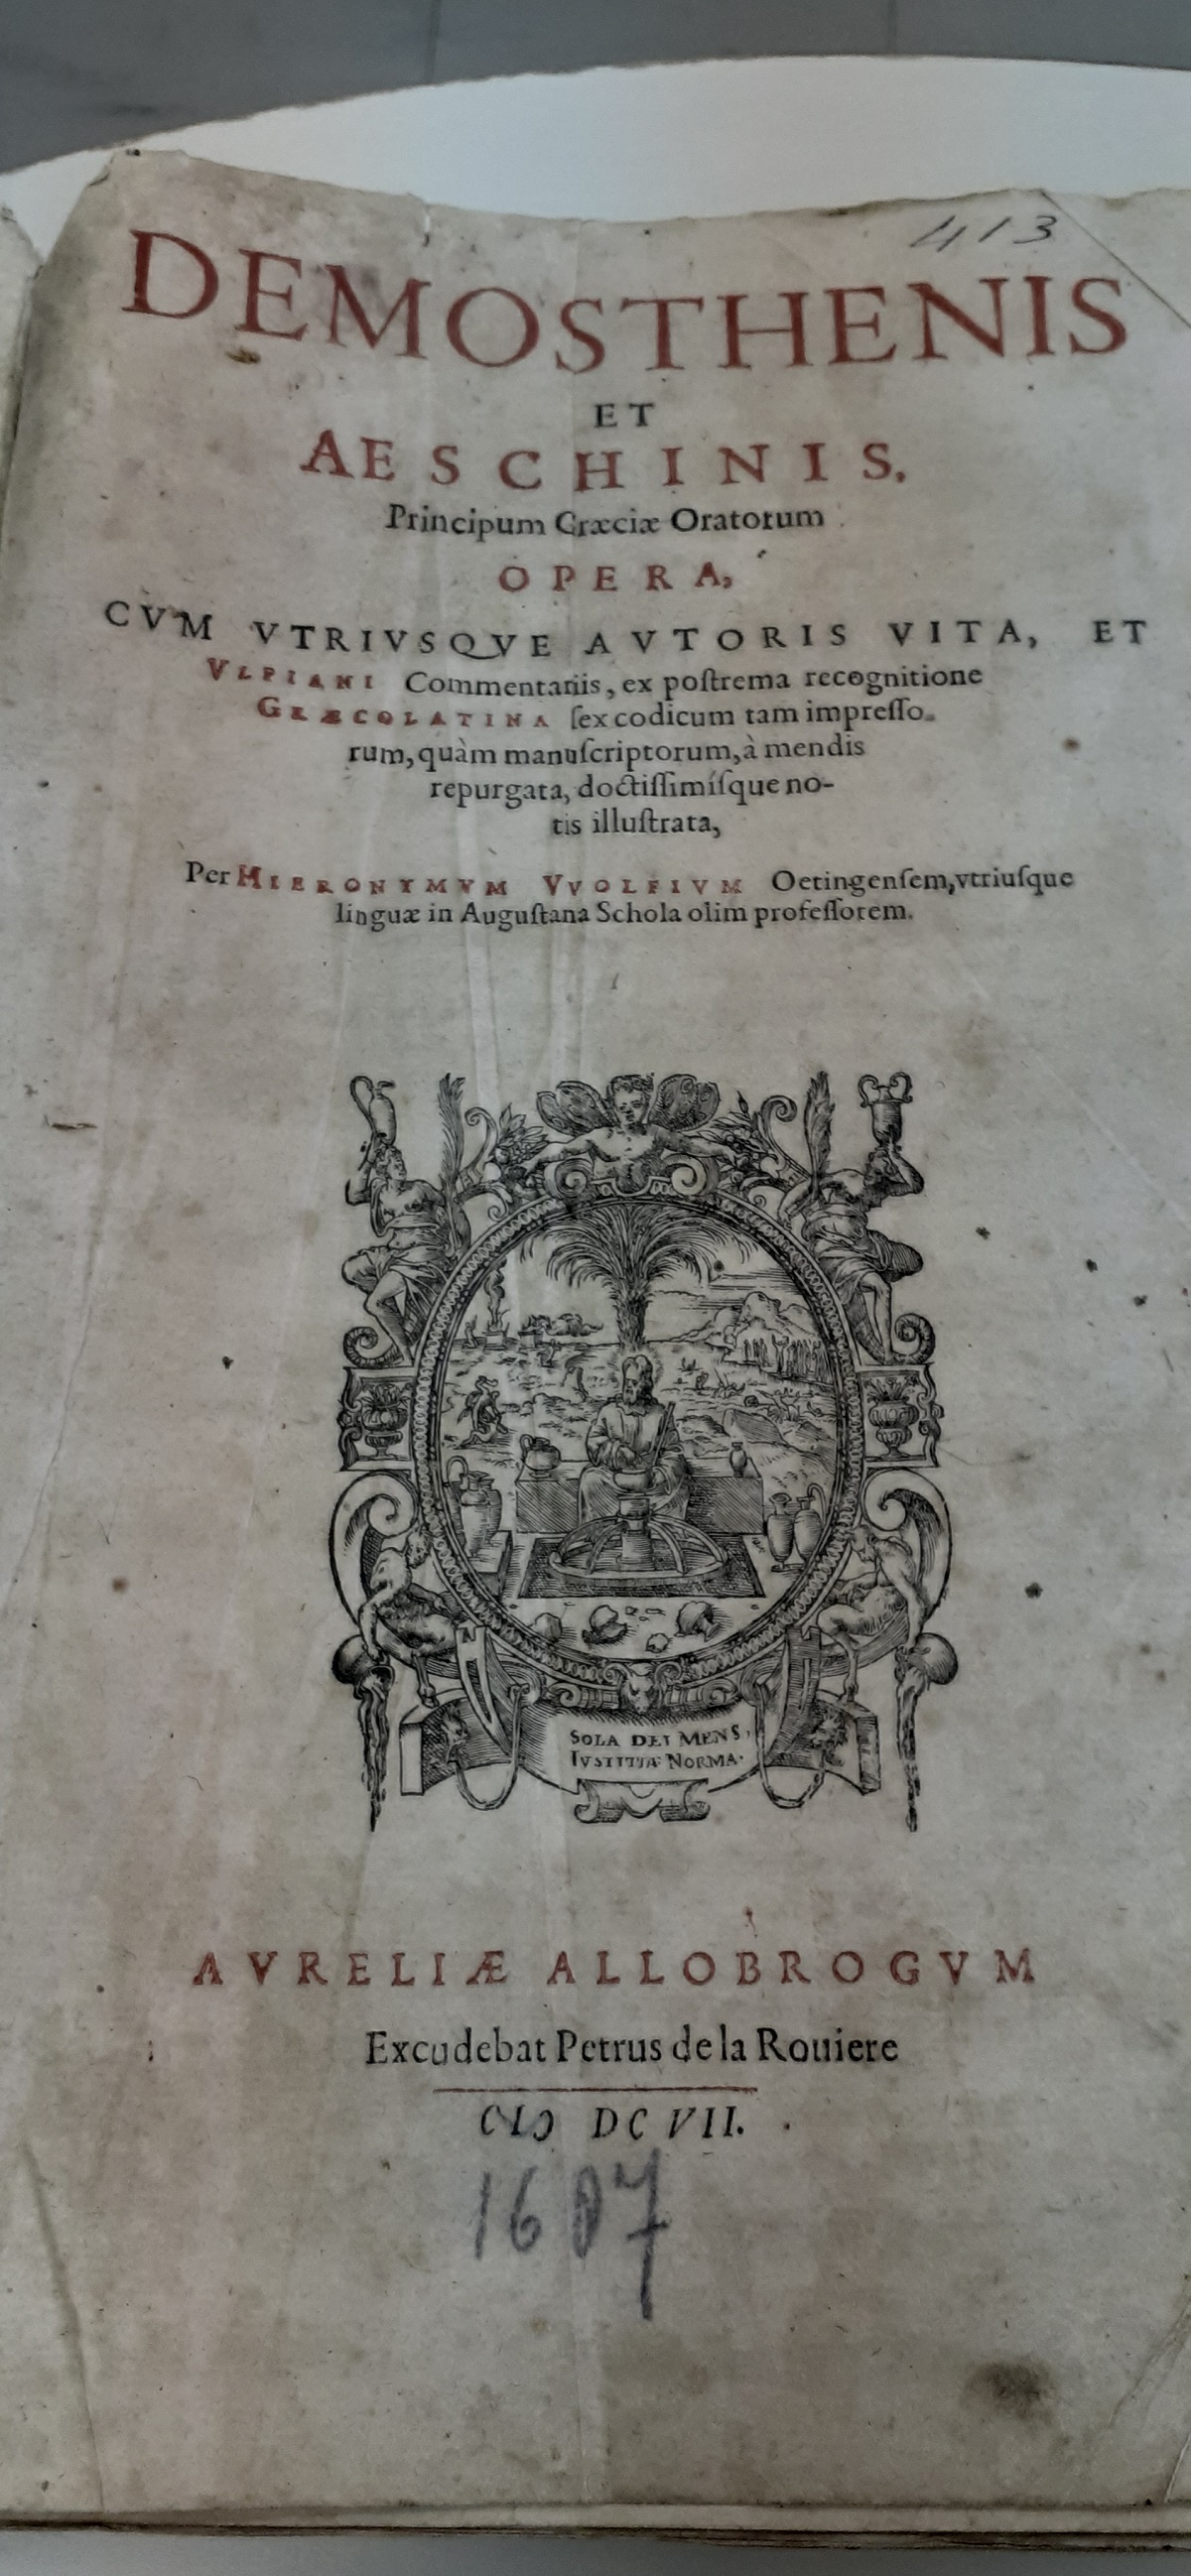 413
DEMOSTHENIS
ET
AESCHINIS,
Principum Græciæ Oratorum
OPERA,
CVM VTRIVSQVE AVTORIS VITA, ET
VLPIANI Commentariis, ex poſtrema recognitione
GRÆCOLATINA ſex codicum tam impreſſo-
rum, quàm manuſcriptorum, à mendis
repurgata, doctiſſimíſque no-
tis illuſtrata,
Per HIERONYMVM VVOLFIVM Oetingenſem, vtriuſque
linguæ in Auguſtana Schola olim profeſſorem.
SOLA DEI MENS,
IVSTITIÆ NORMA.
AVRELIÆ ALLOBROGVM
Excudebat Petrus de la Rouiere
CIↃ DC VII.
1607